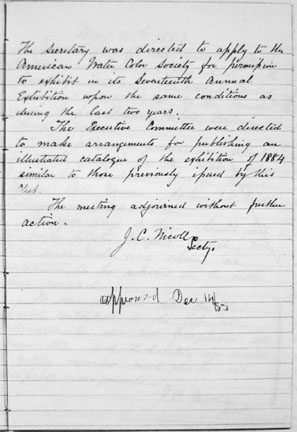 The Secretary was directed to apply to the
American Water Color Society for permission
to exhibit in its Seventeenth Annual
Exhibition upon the same conditions as
during the last two years.
The Executive Committee were directed
to make arrangements for publishing an
illustrated catalogue of the exhibition of 1884
similar to those previously issued by this
Club.
The meeting adjourned without further
action.
J. C. Nicoll
Secty.
Approved Dec 14/83